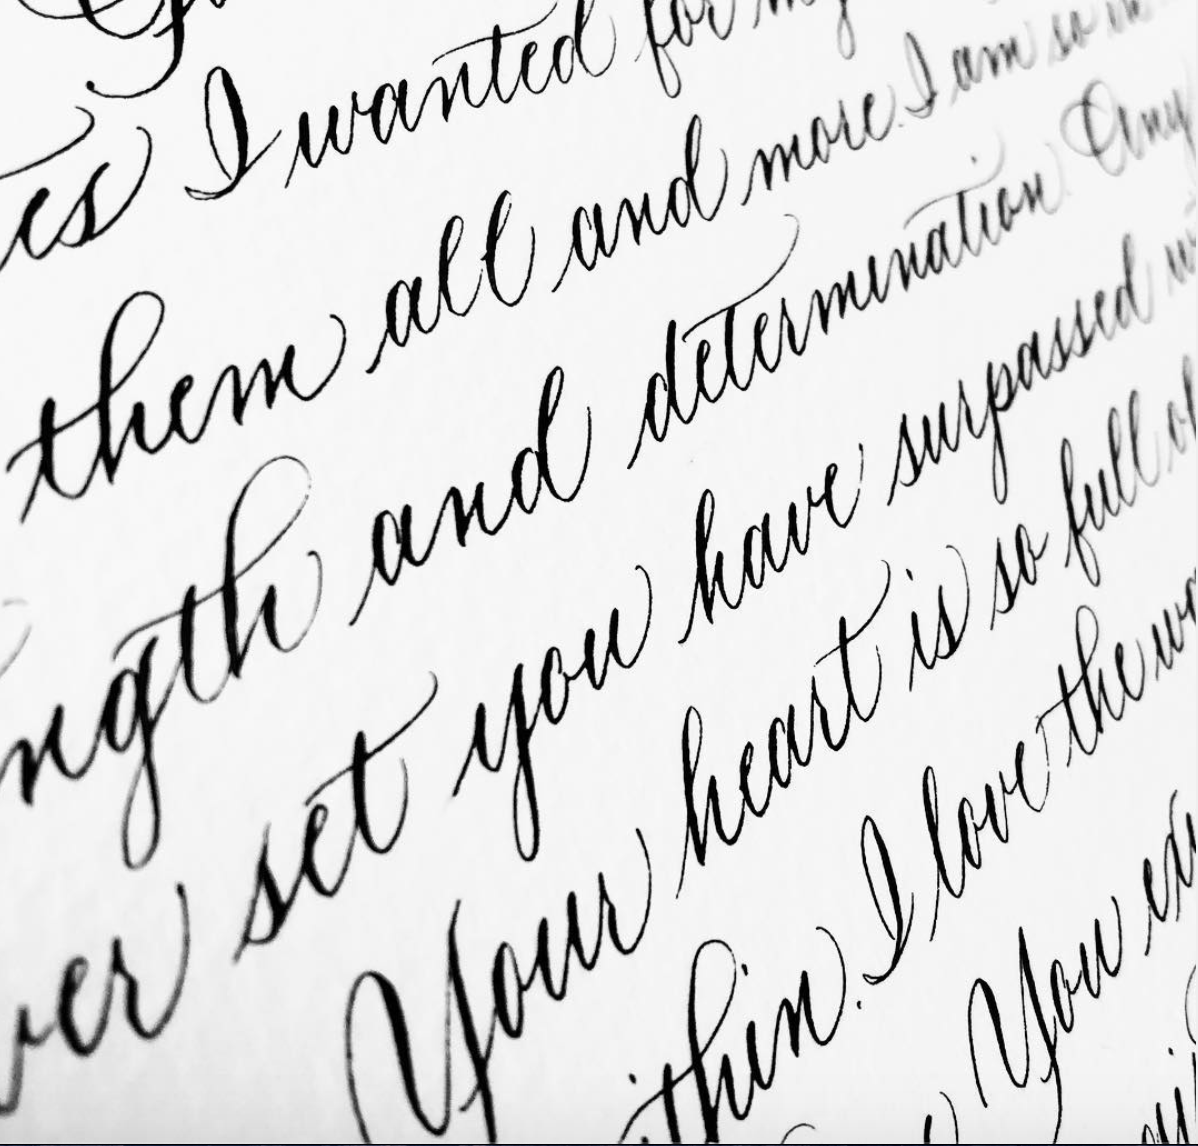 I wanted for my
them all and more. I am so in
and determination. Any
set you have surpassed
Your heart is so full of
I love the
You